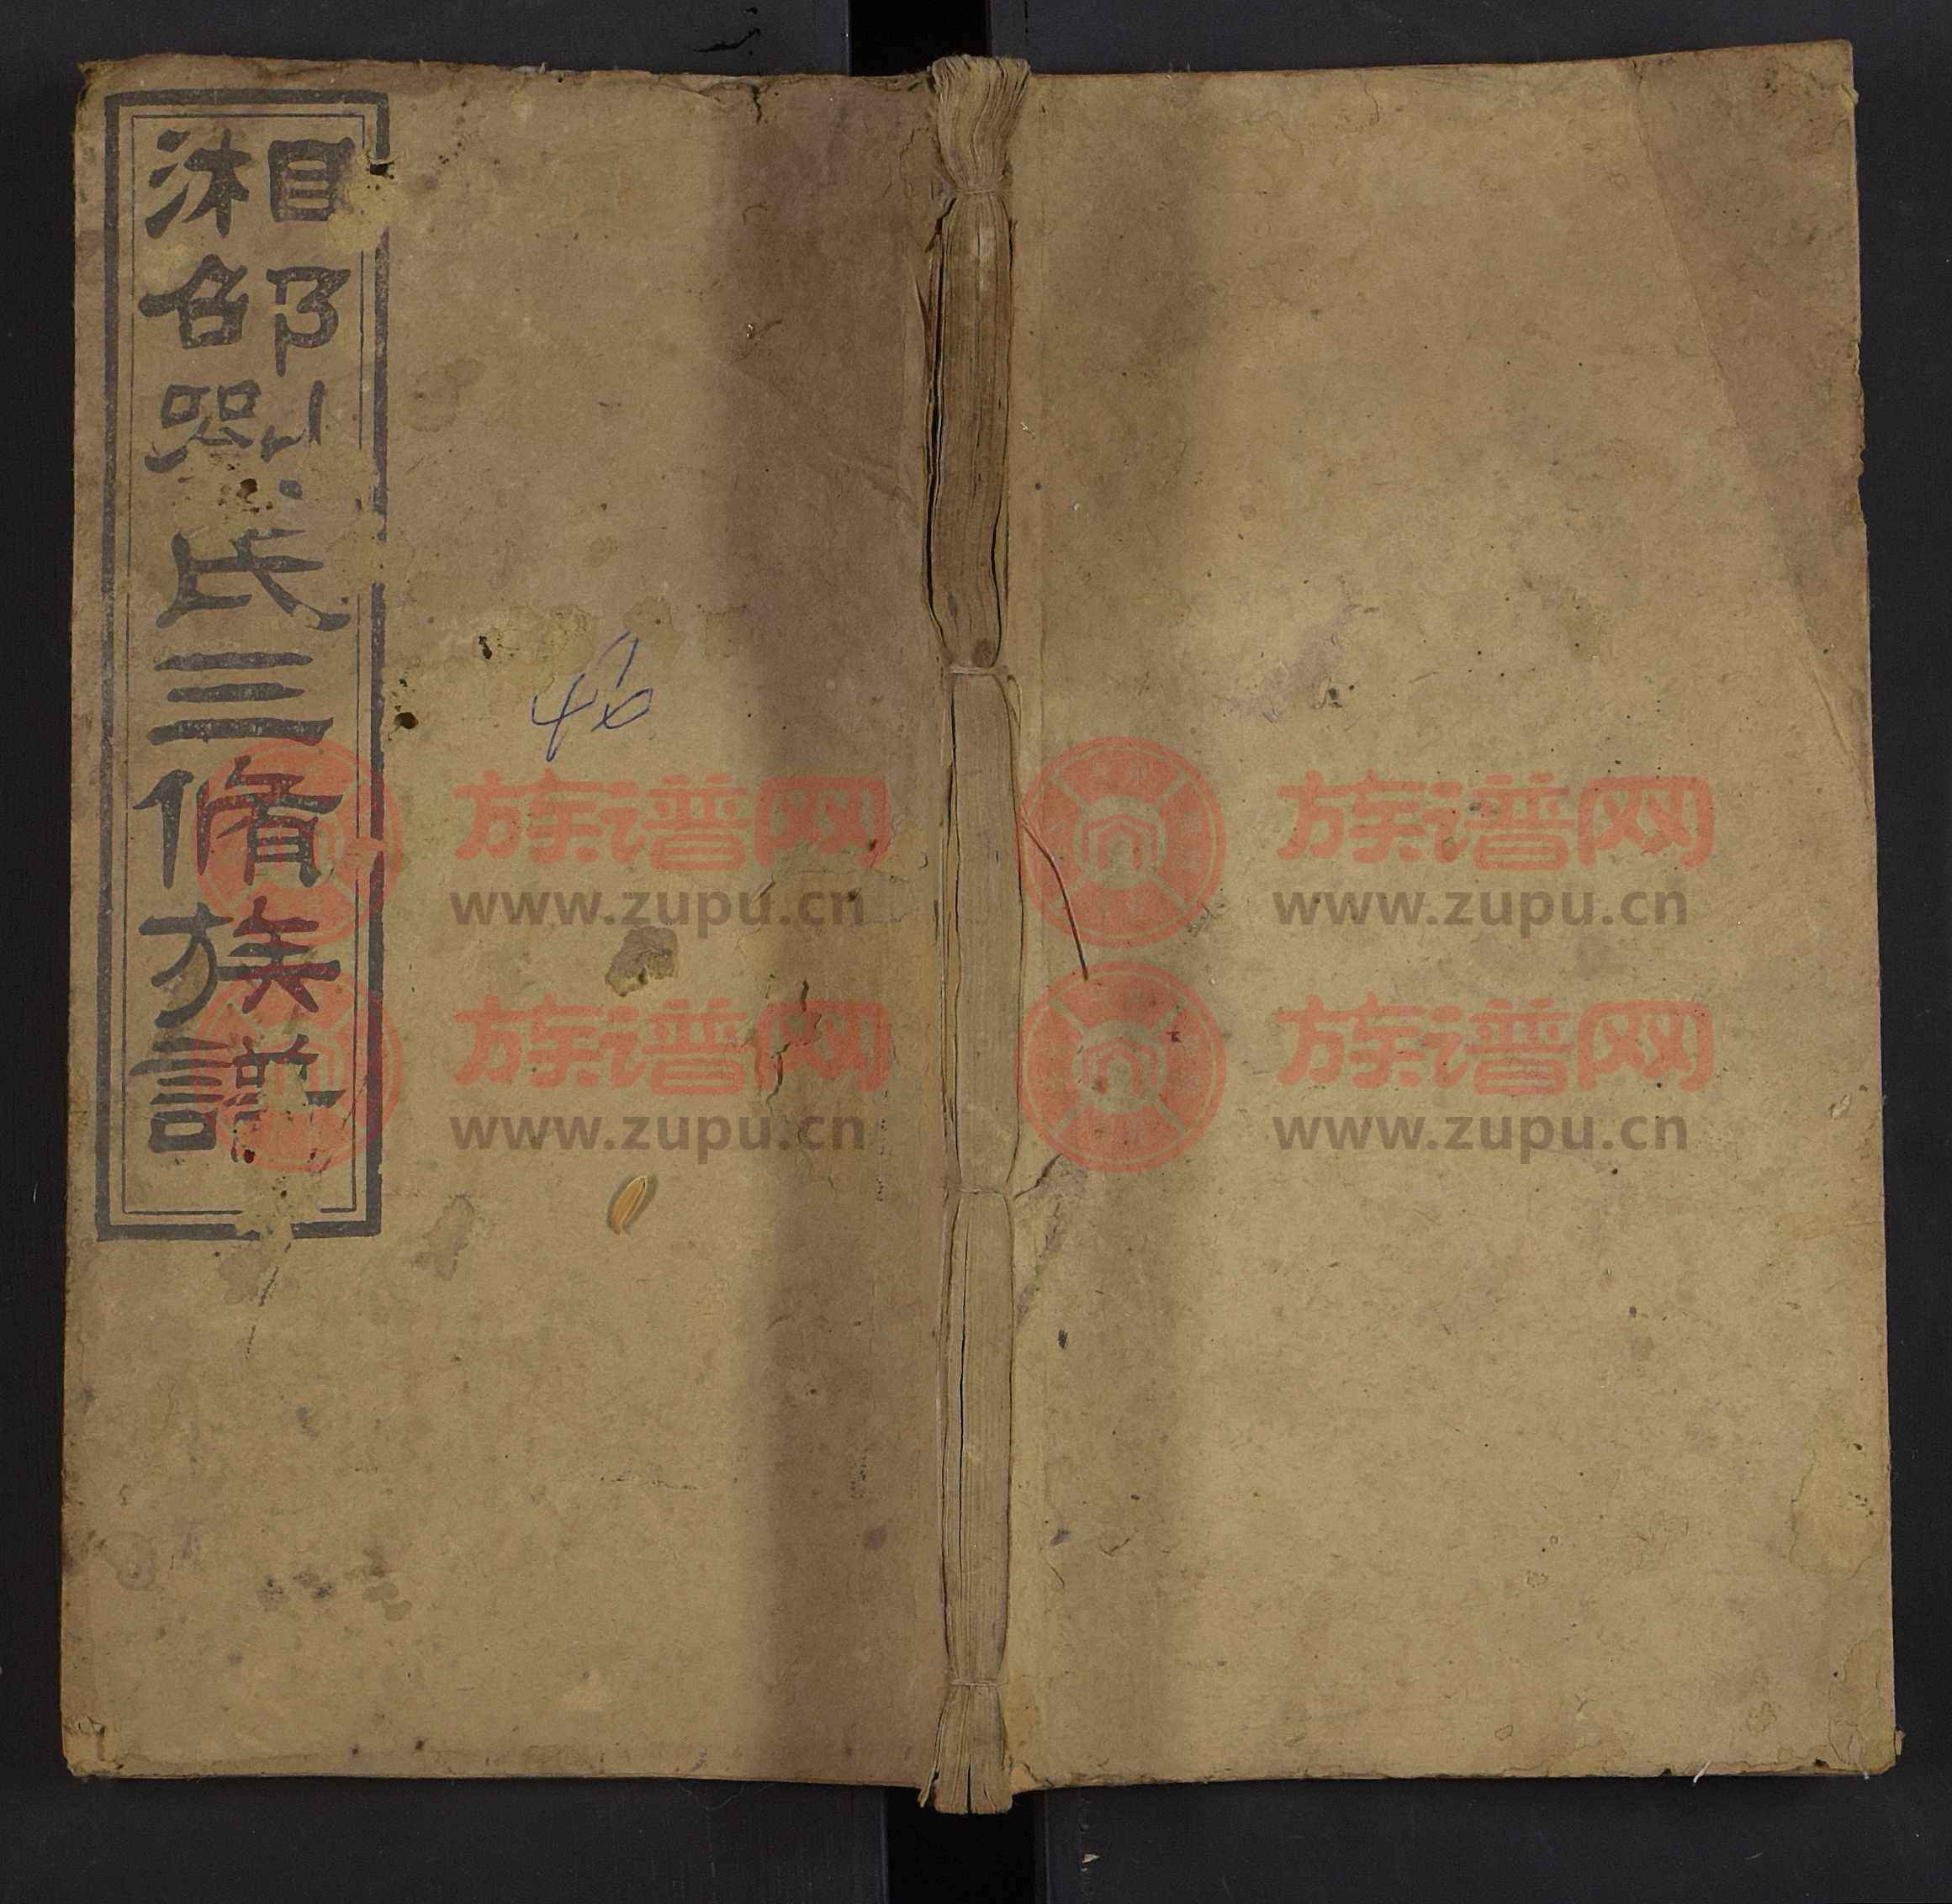 湘邵劉氏三脩族譜
46
族谱网 族谱网
www.zupu.cn www.zupu.cn
族谱网 族谱网
www.zupu.cn www.zupu.cn